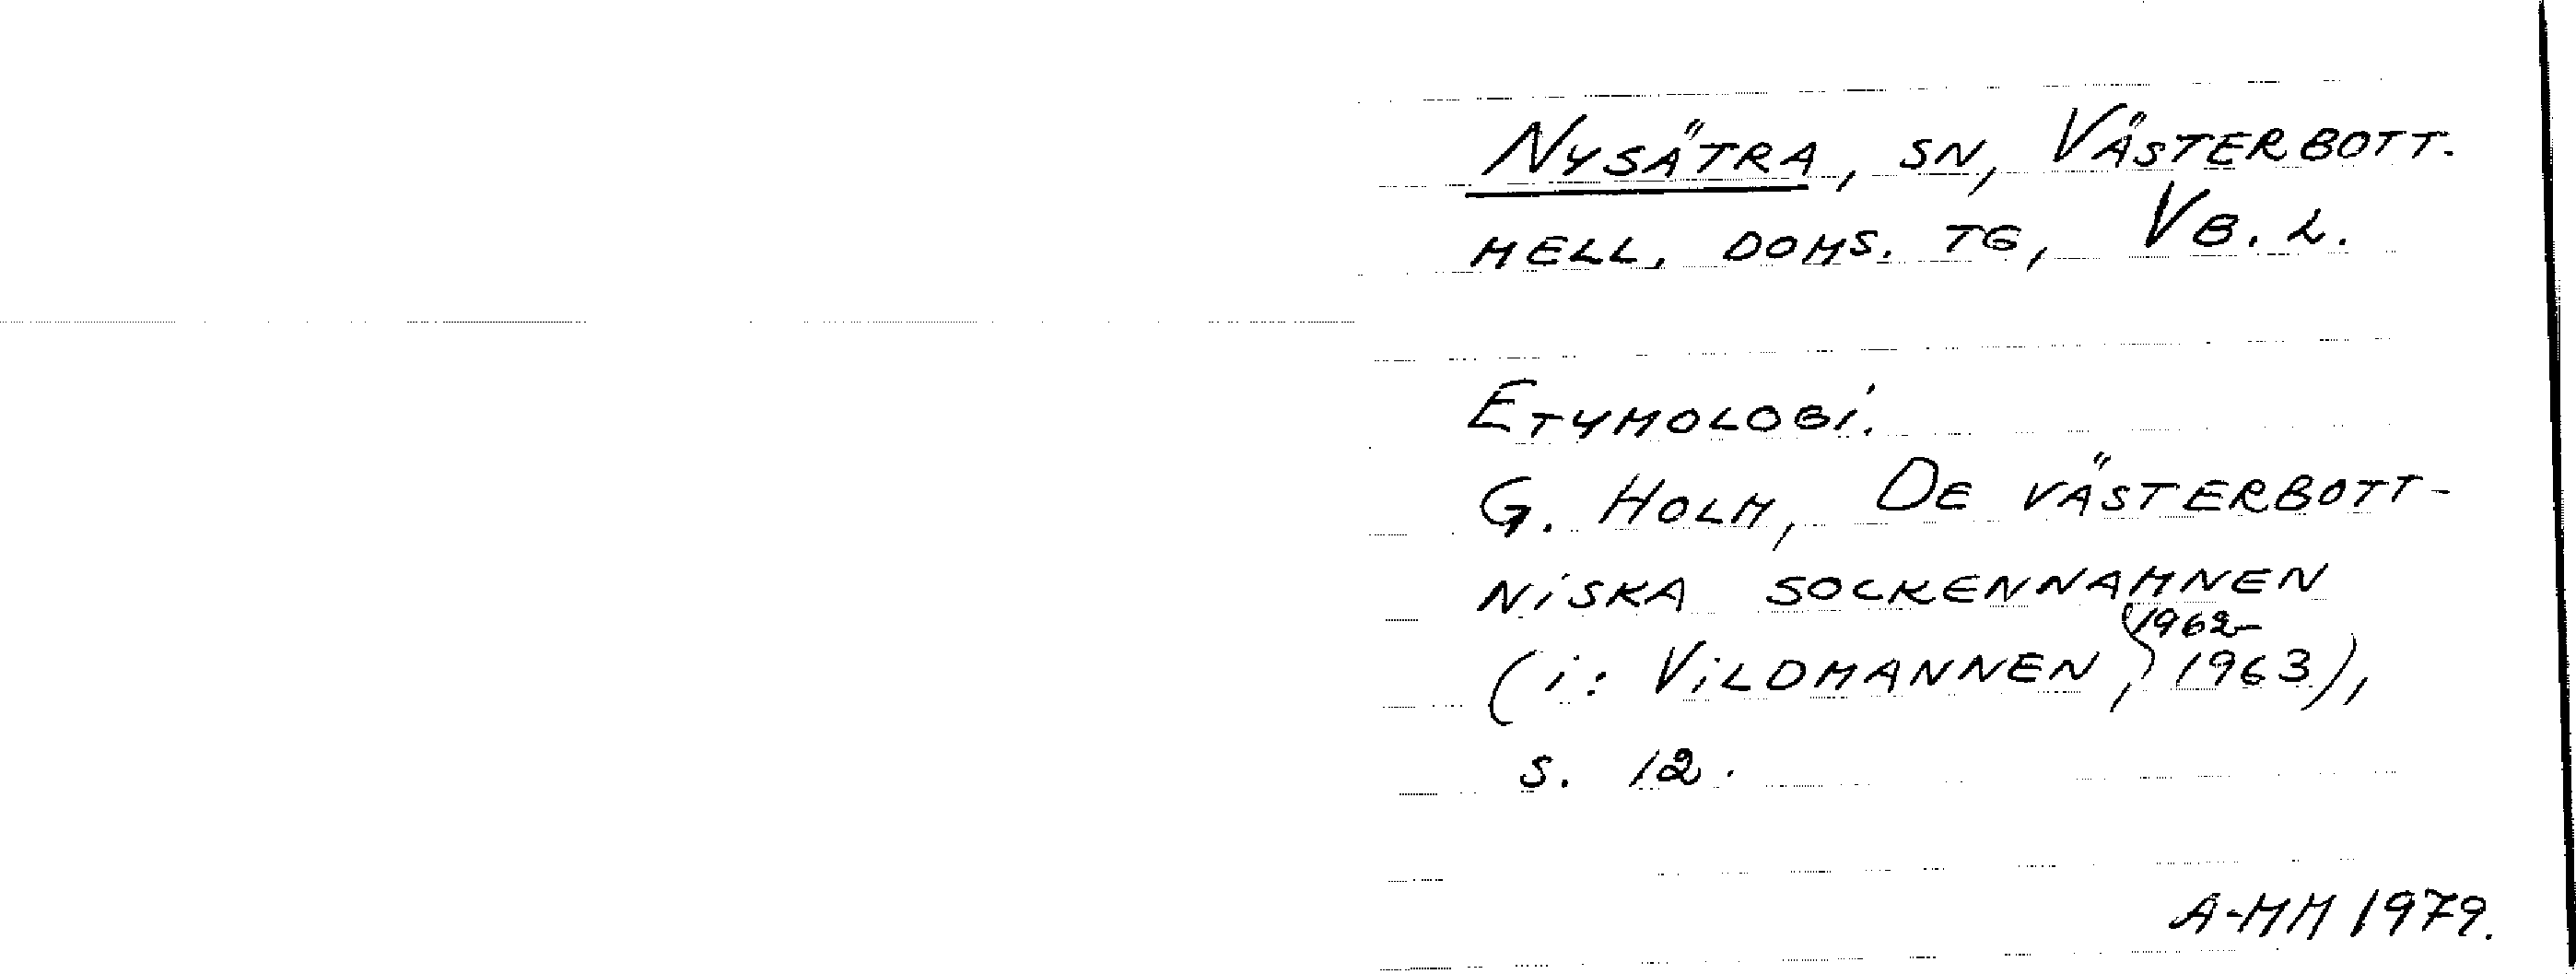 NYSÄTRA, SN, VÄSTERBOTT.
MELL. DOMS. TG, VB. L.
ETYMOLOGI.
G. HOLM, DE VÄSTERBOTT-
NISKA SOCKENNAMNEN
(i: VILDMANNEN, 1962-
1963),
s. 12.
A-MM 1979.